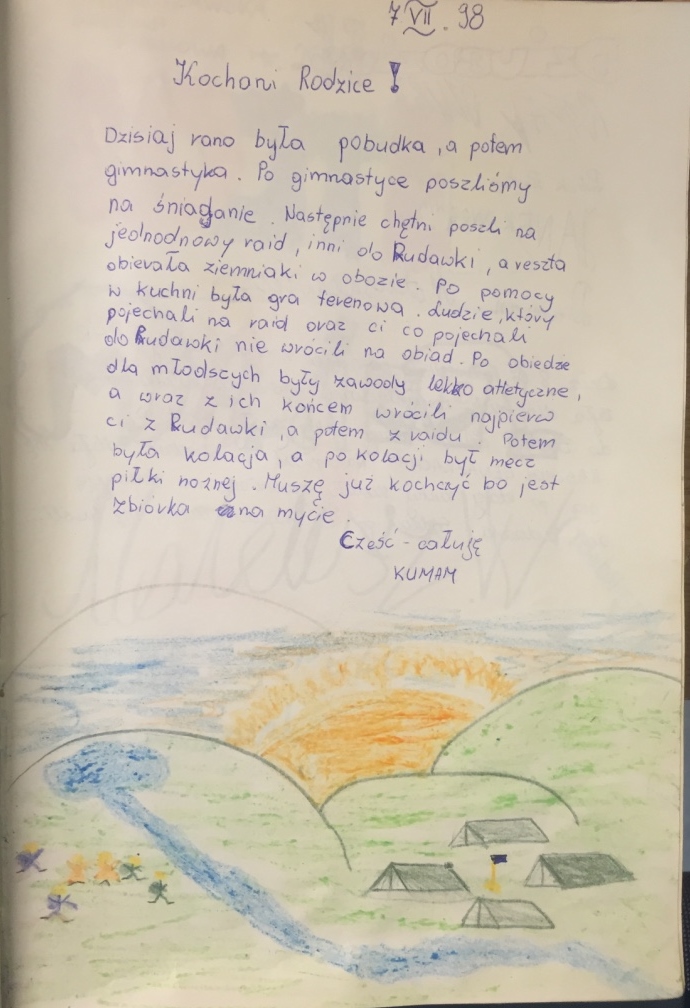 7 VII. 98
Kochani Rodzice!
Dzisiaj rano była pobudka, a potem
gimnastyka. Po gimnastyce poszliómy
na śniadanie. Następnie chętni poszli na
jednodnowy raid, inni do Rudawki, a reszta
obierała ziemniaki w obozie. Po pomocy
w kuchni była gra terenowa. Ludzie, który
pojechali na raid oraz ci co pojechali
do Rudawki nie wrócili na obiad. Po obiedzie
dla młodszych były zawody lekko atletyczne,
a wraz z ich końcem wrócili najpierw
ci z Rudawki, a potem z raidu. Potem
była kolacja, a po kolacji był mecz
piłki nożnej. Muszę już kochczyć bo jest
zbiórka na mycie.
Cześć - całuję
KUMAM